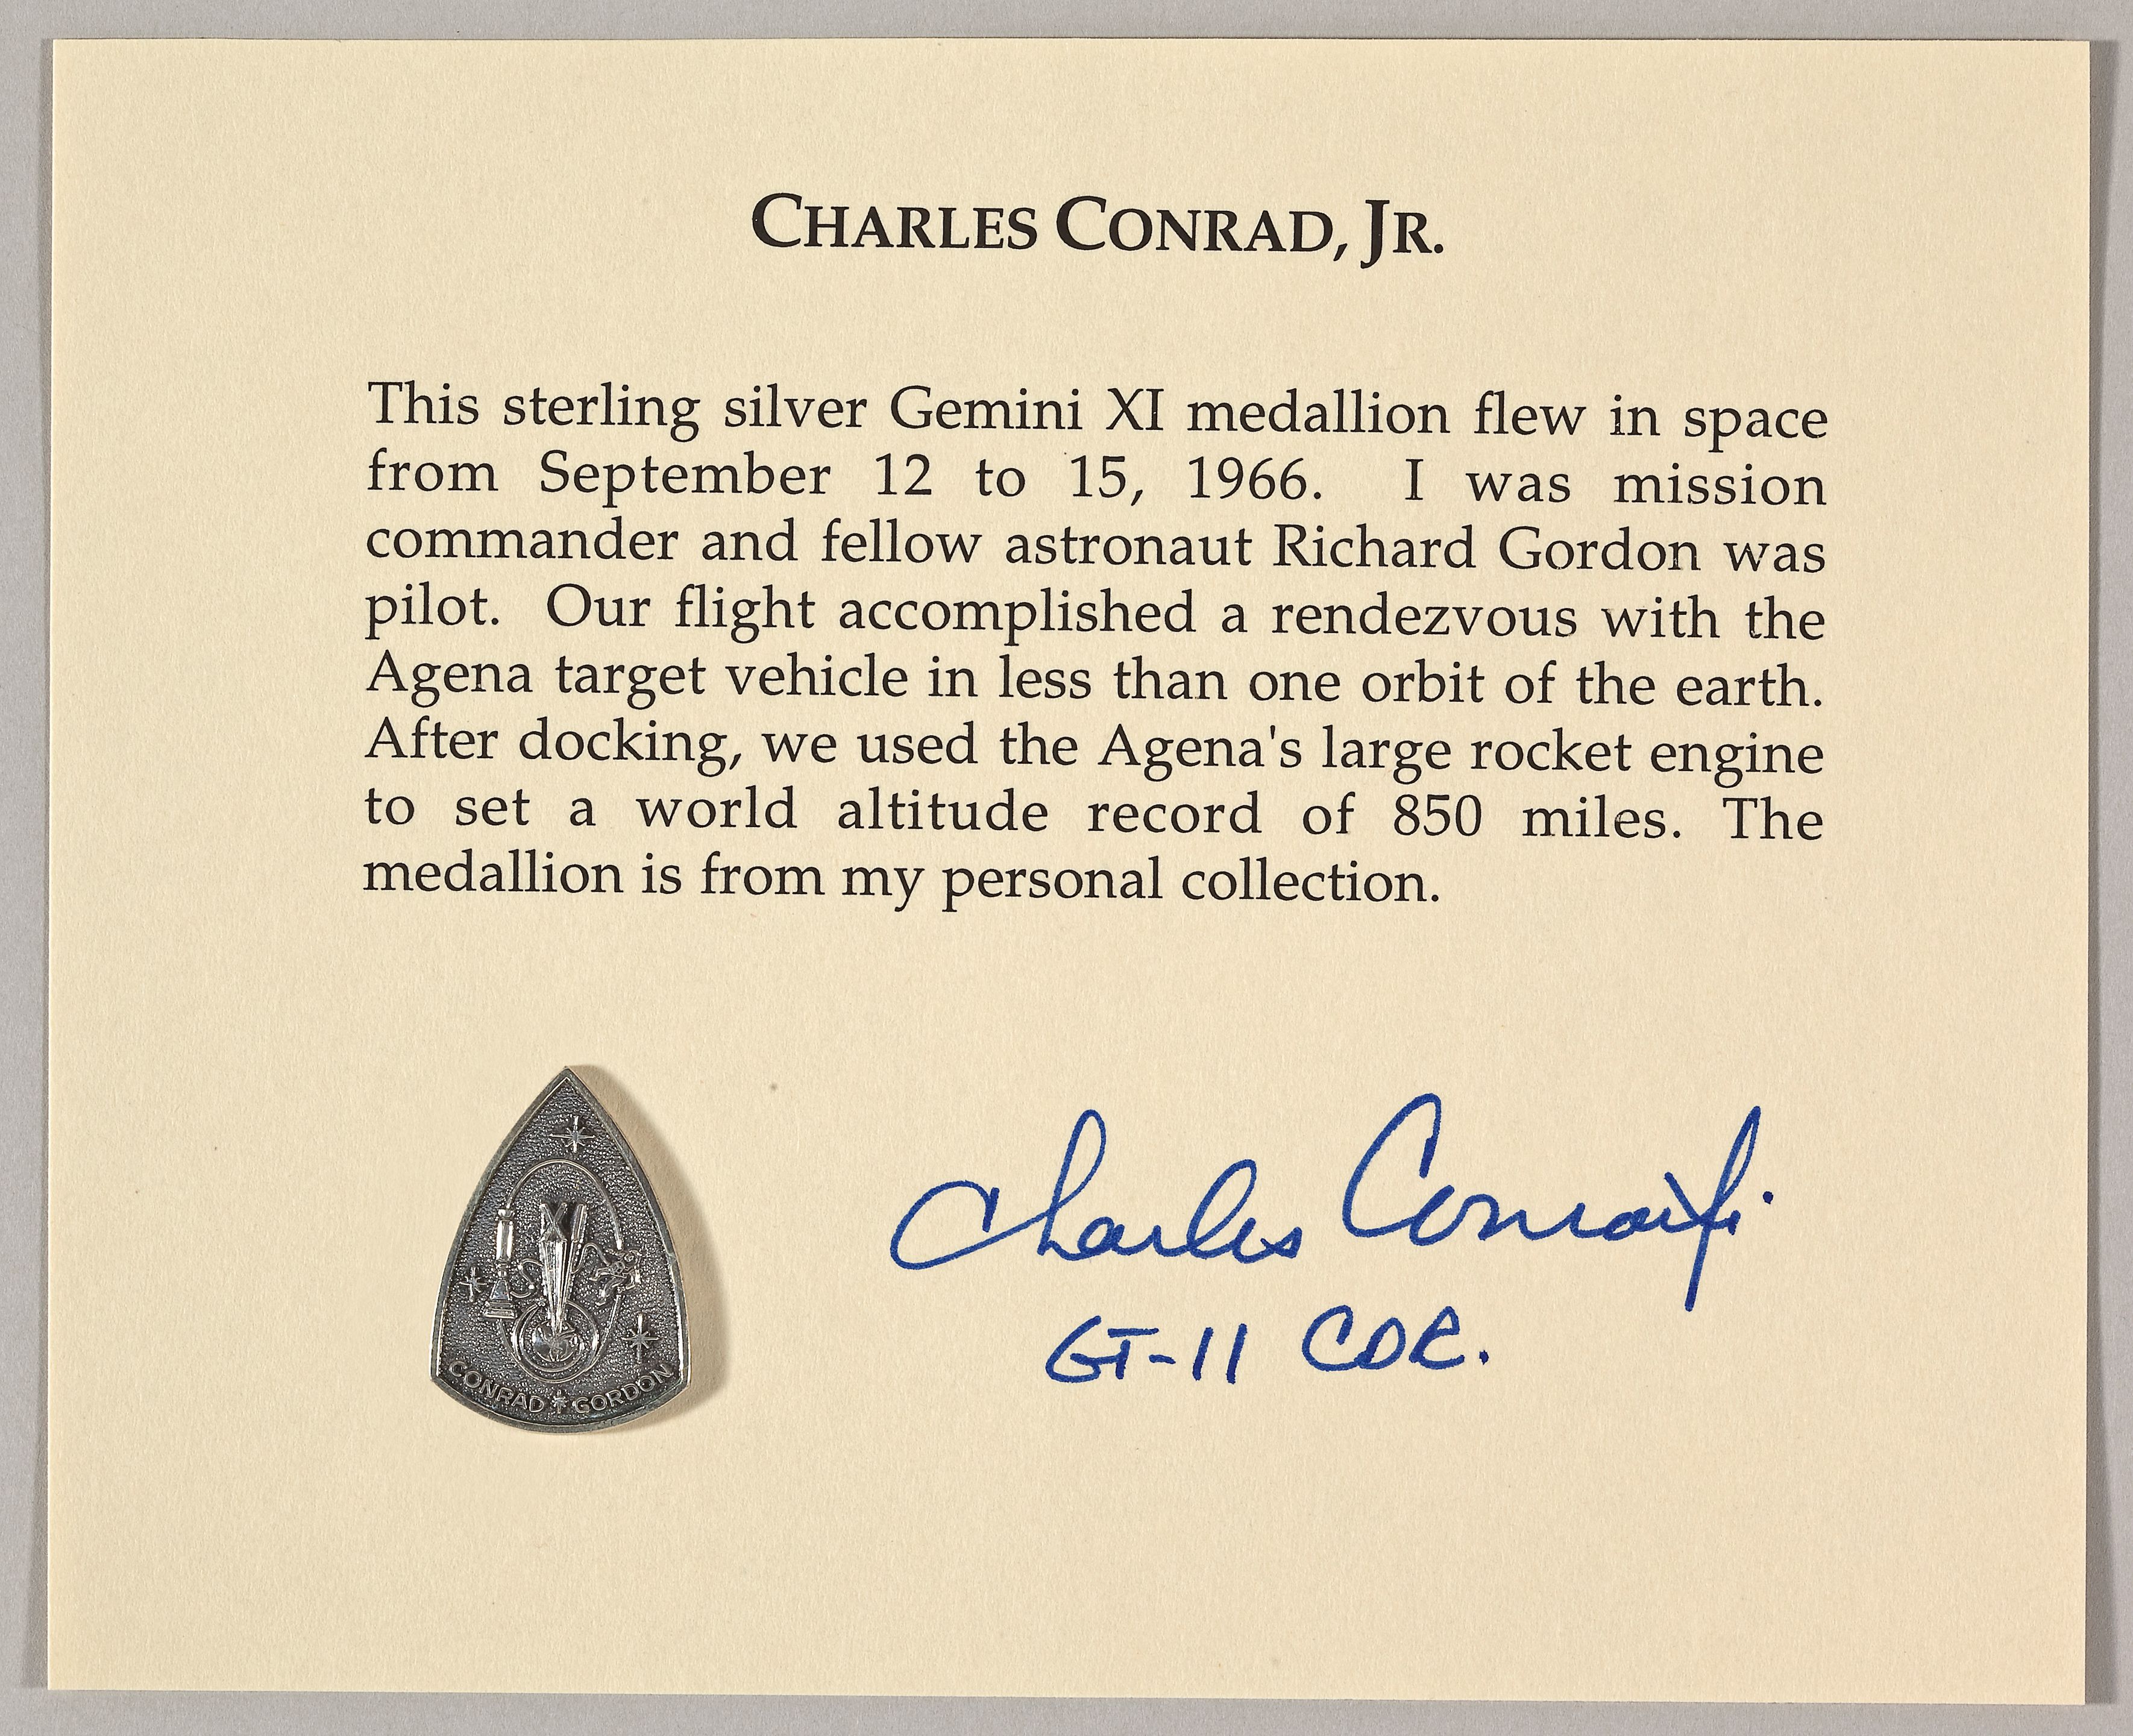 CHARLES CONRAD, JR.
This sterling silver Gemini XI medallion flew in space
from September 12 to 15, 1966. I was mission
commander and fellow astronaut Richard Gordon was
pilot. Our flight accomplished a rendezvous with the
Agena target vehicle in less than one orbit of the earth.
After docking, we used the Agena's large rocket engine
to set a world altitude record of 850 miles. The
medallion is from my personal collection.
XI
CONRAD GORDON
Charles Conrad Jr.
GT-11 CDR.